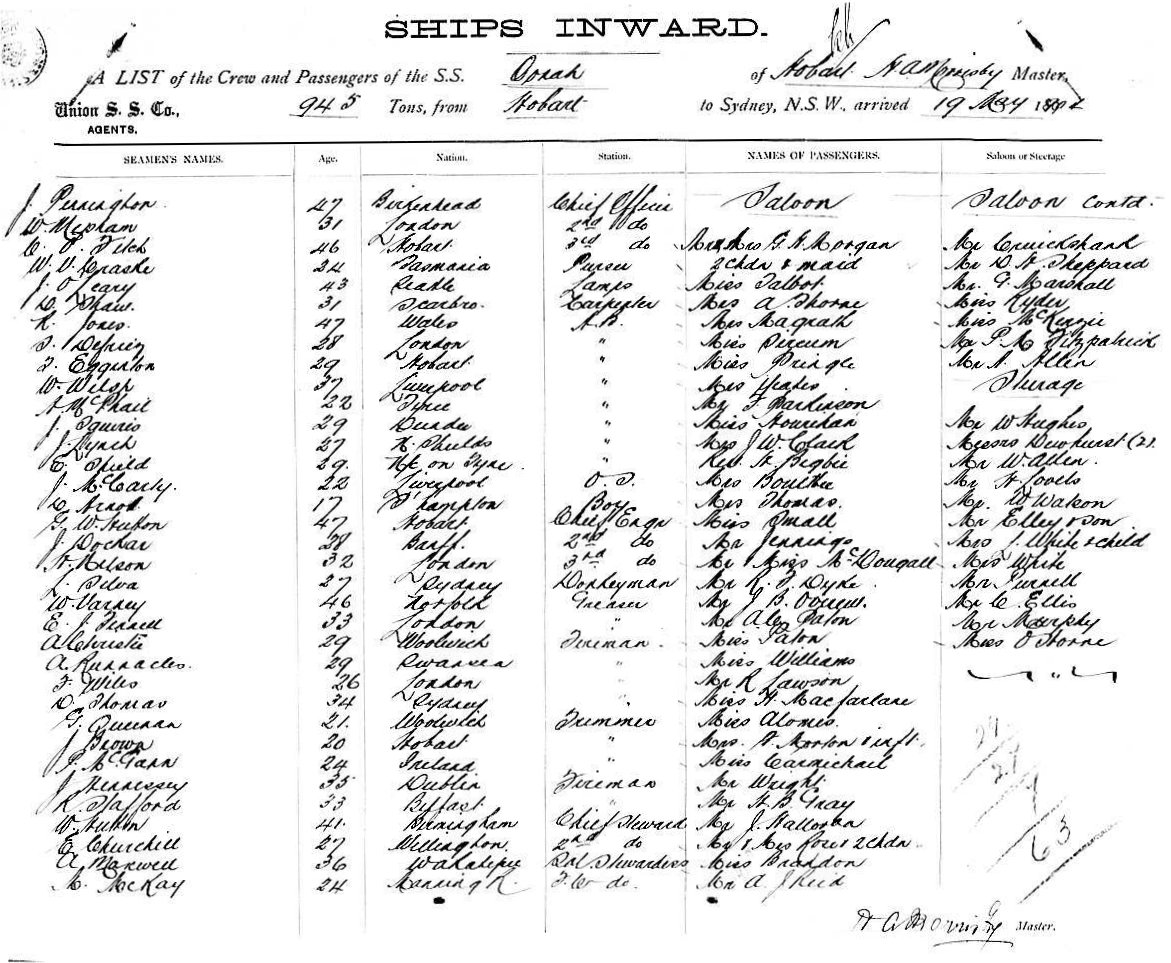 SHIPS INWARD.
A LIST of the Crew and Passengers of the S.S. Oonah of Hobart H A Morrisby Master,
Union S. S. Co., 945 Tons, from Hobart to Sydney, N.S.W., arrived 19 May 1892
AGENTS,
SEAMEN'S NAMES. Age. Nation. Station. NAMES OF PASSENGERS. Saloon or Steerage
J. Pennington 47 Birkenhead Chief Officer Saloon Saloon contd.
W. Mepham 31 London 2nd do
C. P. Fitch 46 Hobart 3rd do Mr & Mrs G. H. Morgan Mr Cruickshank
W. V. Craske 24 Tasmania Purser 2 chdn & maid Mr D. H. Sheppard
J. O'Leary 43 Lamps Miss Talbot Mr. G. Marshall
D. Shaw 31 Scarbro. Carpenter Mrs A. Thorne Miss Ryder
R. Jones. 47 Wales A.B. Mrs Magrath Miss McKenzie
28 London " Miss Mr P. M. Fitzpatrick
F. Eggerton 29 Hobart " Miss Pringle Mr A. Allen
W. Wilson 37 Liverpool " Mrs Yeates Steerage
A McPhail 22 Tyree " Mr F. Parkinson
J. Squires 29 Dundee " Miss Hourihan Mr W Hughes
J. Lynch 27 N. Shields " Mrs J. W. Clark Messrs Dewhurst (2).
D. Shield 29. N.C. on Tyne. " Rev. H. Begbie Mr W. Allen.
J. McCarty. 22 Liverpool O. S. Mrs Boultbee Mr H. Jovels
17 S'hampton Boy Mrs Thomas. Mr. W Watson
G. W. Hutton 47 Hobart Chief Engr Miss Small Mr Elley & son
J. Dockar 28 Banff. 2nd do Mr Jennings Mrs J. White & child
H. Nelson 32 London 3rd do Mr & Miss McDougall Mrs White
J. Silva 27 Sydney Donkeyman Mr R. F Dyke Mr Purnell
W. Varney 46 Norfolk Greaser Mr J. B. Mr C. Ellis
E. J. Fennell 33 London " Mr Alex Paton Mr Murphy
A Christie 29 Woolwich Fireman Miss Paton Miss O'Horne
A. Runnacles. 29 Swansea " Miss Williams
F. Wiles 26 London " Mr R Lawson "
D. Thomas 34 Sydney " Miss H. Macfarlane
G. Queenan 21. Woolwich Trimmer Miss Alomes.
J. Brown 20 Hobart " Mrs. H. Morton & inft. 29
P. McGann 24 Ireland " Miss Carmichael 27
J. Hennessey 35 Dublin Fireman Mr Wright 7
R. Stafford 33 Belfast " Mr H. B Gray
W. Hutton 41. Birmingham Chief Steward Mr J. Halloran 63
E. Churchill 27 Wellington. 2nd do Mr & Mrs Rowe & 2 chdn
A. Maxwell 36 Wakatipu Sal. Stewardess Miss Brandon
M. McKay 24 Manning R. F. C. do. Mr A. J Reid
H A Morrisby Master.